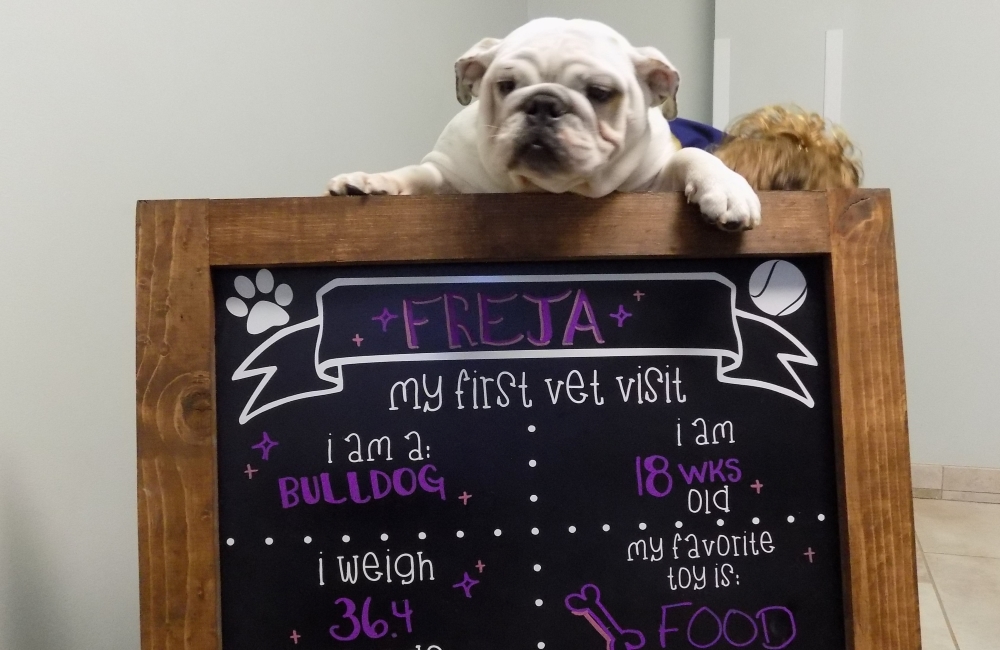 FREJA
my first vet visit
i am a:
BULLDOG
i am
18 wks
old
i weigh
36.4
my favorite
toy is:
FOOD